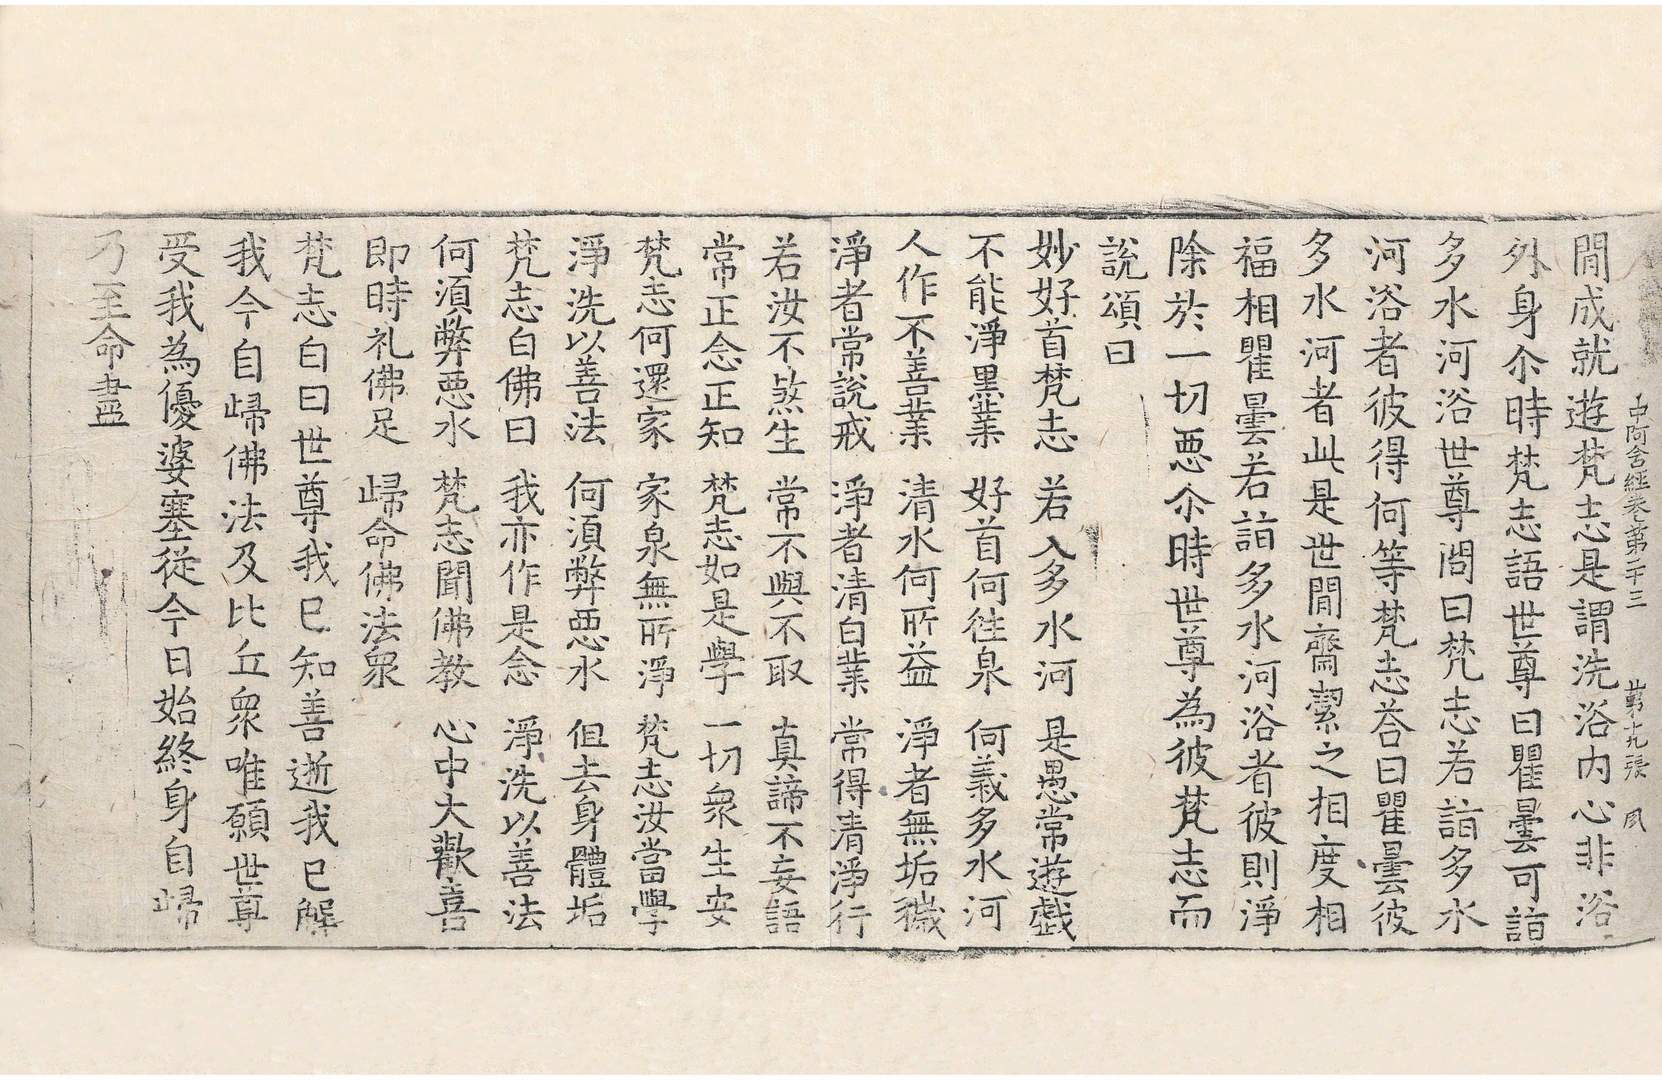 中阿含經卷第二十三 第十九張 夙
閒成就遊梵志是謂洗浴內心非浴
外身尒時梵志語世尊曰瞿曇可詣
多水河浴世尊問曰梵志若詣多水
河浴者彼得何等梵志荅曰瞿曇彼
多水河者此是世閒齋潔之相度相
福相瞿曇若詣多水河浴者彼則淨
除於一切惡尒時世尊為彼梵志而
說頌曰
妙好首梵志 若入多水河 是愚常遊戲
不能淨黑業 好首何徃泉 何義多水河
人作不善業 清水何所益 淨者無垢穢
淨者常說戒 淨者清白業 常得清淨行
若汝不煞生 常不與不取 真諦不妄語
常正念正知 梵志如是學 一切衆生安
梵志何還家 家泉無所淨 梵志汝當學
淨洗以善法 何須弊惡水 但去身體垢
梵志白佛曰 我亦作是念 淨洗以善法
何須弊惡水 梵志聞佛教 心中大歡喜
即時礼佛足 歸命佛法衆
梵志白曰世尊我已知善逝我已解
我今自歸佛法及比丘衆唯願世尊
受我為優婆塞從今日始終身自歸
乃至命盡